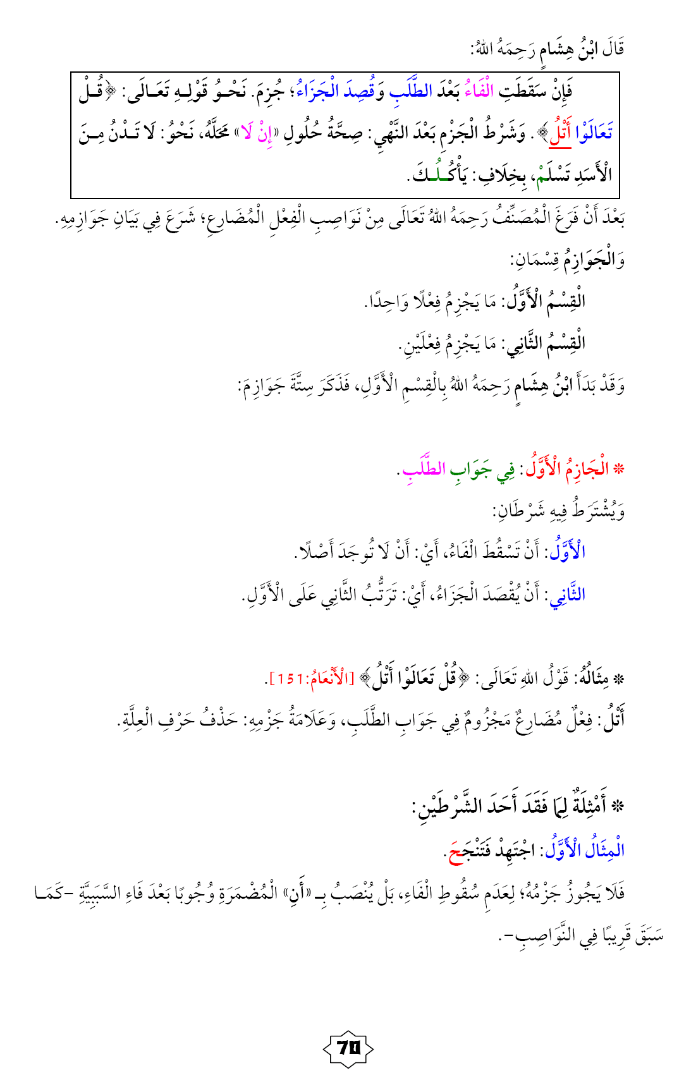 قَالَ ابْنُ هِشَامٍ رَحِمَهُ اللهُ:
فَإِنْ سَقَطَتِ الْفَاءُ بَعْدَ الطَّلَبِ وَقُصِدَ الْجَزَاءُ؛ جُزِمَ. نَحْـوُ قَوْلِـهِ تَعَـالَى: ﴿قُـلْ
تَعَالَوْا أَتْلُ﴾. وَشَرْطُ الْجَزْمِ بَعْدَ النَّهْيِ: صِحَّةُ حُلُولِ «إِنْ لَا» مَحَلَّهُ، نَحْوُ: لَا تَـدْنُ مِـنَ
الْأَسَدِ تَسْلَمْ، بِخِلَافِ: يَأْكُـلُـكَ.
بَعْدَ أَنْ فَرَغَ الْمُصَنِّفُ رَحِمَهُ اللهُ تَعَالَى مِنْ نَوَاصِبِ الْفِعْلِ الْمُضَارِعِ؛ شَرَعَ فِي بَيَانِ جَوَازِمِهِ.
وَالْجَوَازِمُ قِسْمَانِ:
الْقِسْمُ الْأَوَّلُ: مَا يَجْزِمُ فِعْلًا وَاحِدًا.
الْقِسْمُ الثَّانِي: مَا يَجْزِمُ فِعْلَيْنِ.
وَقَدْ بَدَأَ ابْنُ هِشَامٍ رَحِمَهُ اللهُ بِالْقِسْمِ الْأَوَّلِ، فَذَكَرَ سِتَّةَ جَوَازِمَ:
* الْجَازِمُ الْأَوَّلُ: فِي جَوَابِ الطَّلَبِ.
وَيُشْتَرَطُ فِيهِ شَرْطَانِ:
الْأَوَّلُ: أَنْ تَسْقُطَ الْفَاءُ، أَيْ: أَنْ لَا تُوجَدَ أَصْلًا.
الثَّانِي: أَنْ يُقْصَدَ الْجَزَاءُ، أَيْ: تَرَتُّبُ الثَّانِي عَلَى الْأَوَّلِ.
* مِثَالُهُ: قَوْلُ اللهِ تَعَالَى: ﴿قُلْ تَعَالَوْا أَتْلُ﴾ [الْأَنْعَامُ:151].
أَتْلُ: فِعْلٌ مُضَارِعٌ مَجْزُومٌ فِي جَوَابِ الطَّلَبِ، وَعَلَامَةُ جَزْمِهِ: حَذْفُ حَرْفِ الْعِلَّةِ.
* أَمْثِلَةٌ لِمَا فَقَدَ أَحَدَ الشَّرْطَيْنِ:
الْمِثَالُ الْأَوَّلُ: اجْتَهِدْ فَتَنْجَحَ.
فَلَا يَجُوزُ جَزْمُهُ؛ لِعَدَمِ سُقُوطِ الْفَاءِ، بَلْ يُنْصَبُ بِـ «أَنِ» الْمُضْمَرَةِ وُجُوبًا بَعْدَ فَاءِ السَّبَبِيَّةِ -كَمَـا
سَبَقَ قَرِيبًا فِي النَّوَاصِبِ-.
70